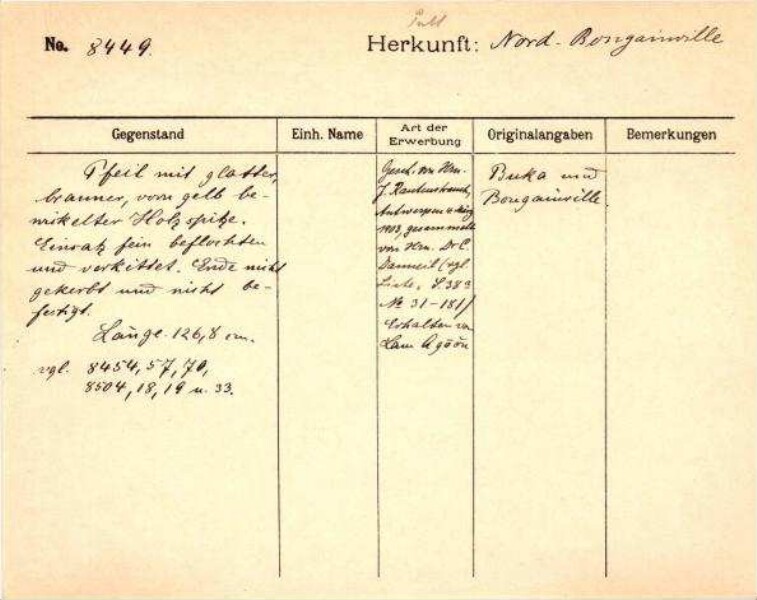 No. 8449.
Herkunft: Nord-Bougainville
Gegenstand
Einh. Name
Art der Erwerbung
Originalangaben
Bemerkungen
Pfeil mit glatter,
brauner, vorn gelb be-
wickelter Holzspitze.
Einsatz fein beflochten
und verkittet. Ende nicht
gekerbt und nicht be-
festigt.
Länge 126,8 cm.
vgl. 8454, 57, 70,
8504, 18, 19 u. 33.
Gesch. von Hrn.
J. Rautenstrauch,
Antwerpen
1903, gesammelt
von Hrn. Dr C.
Danneil (vgl.
Liste, S.
No 31-181)
Erhalten von
Buka und
Bougainville.